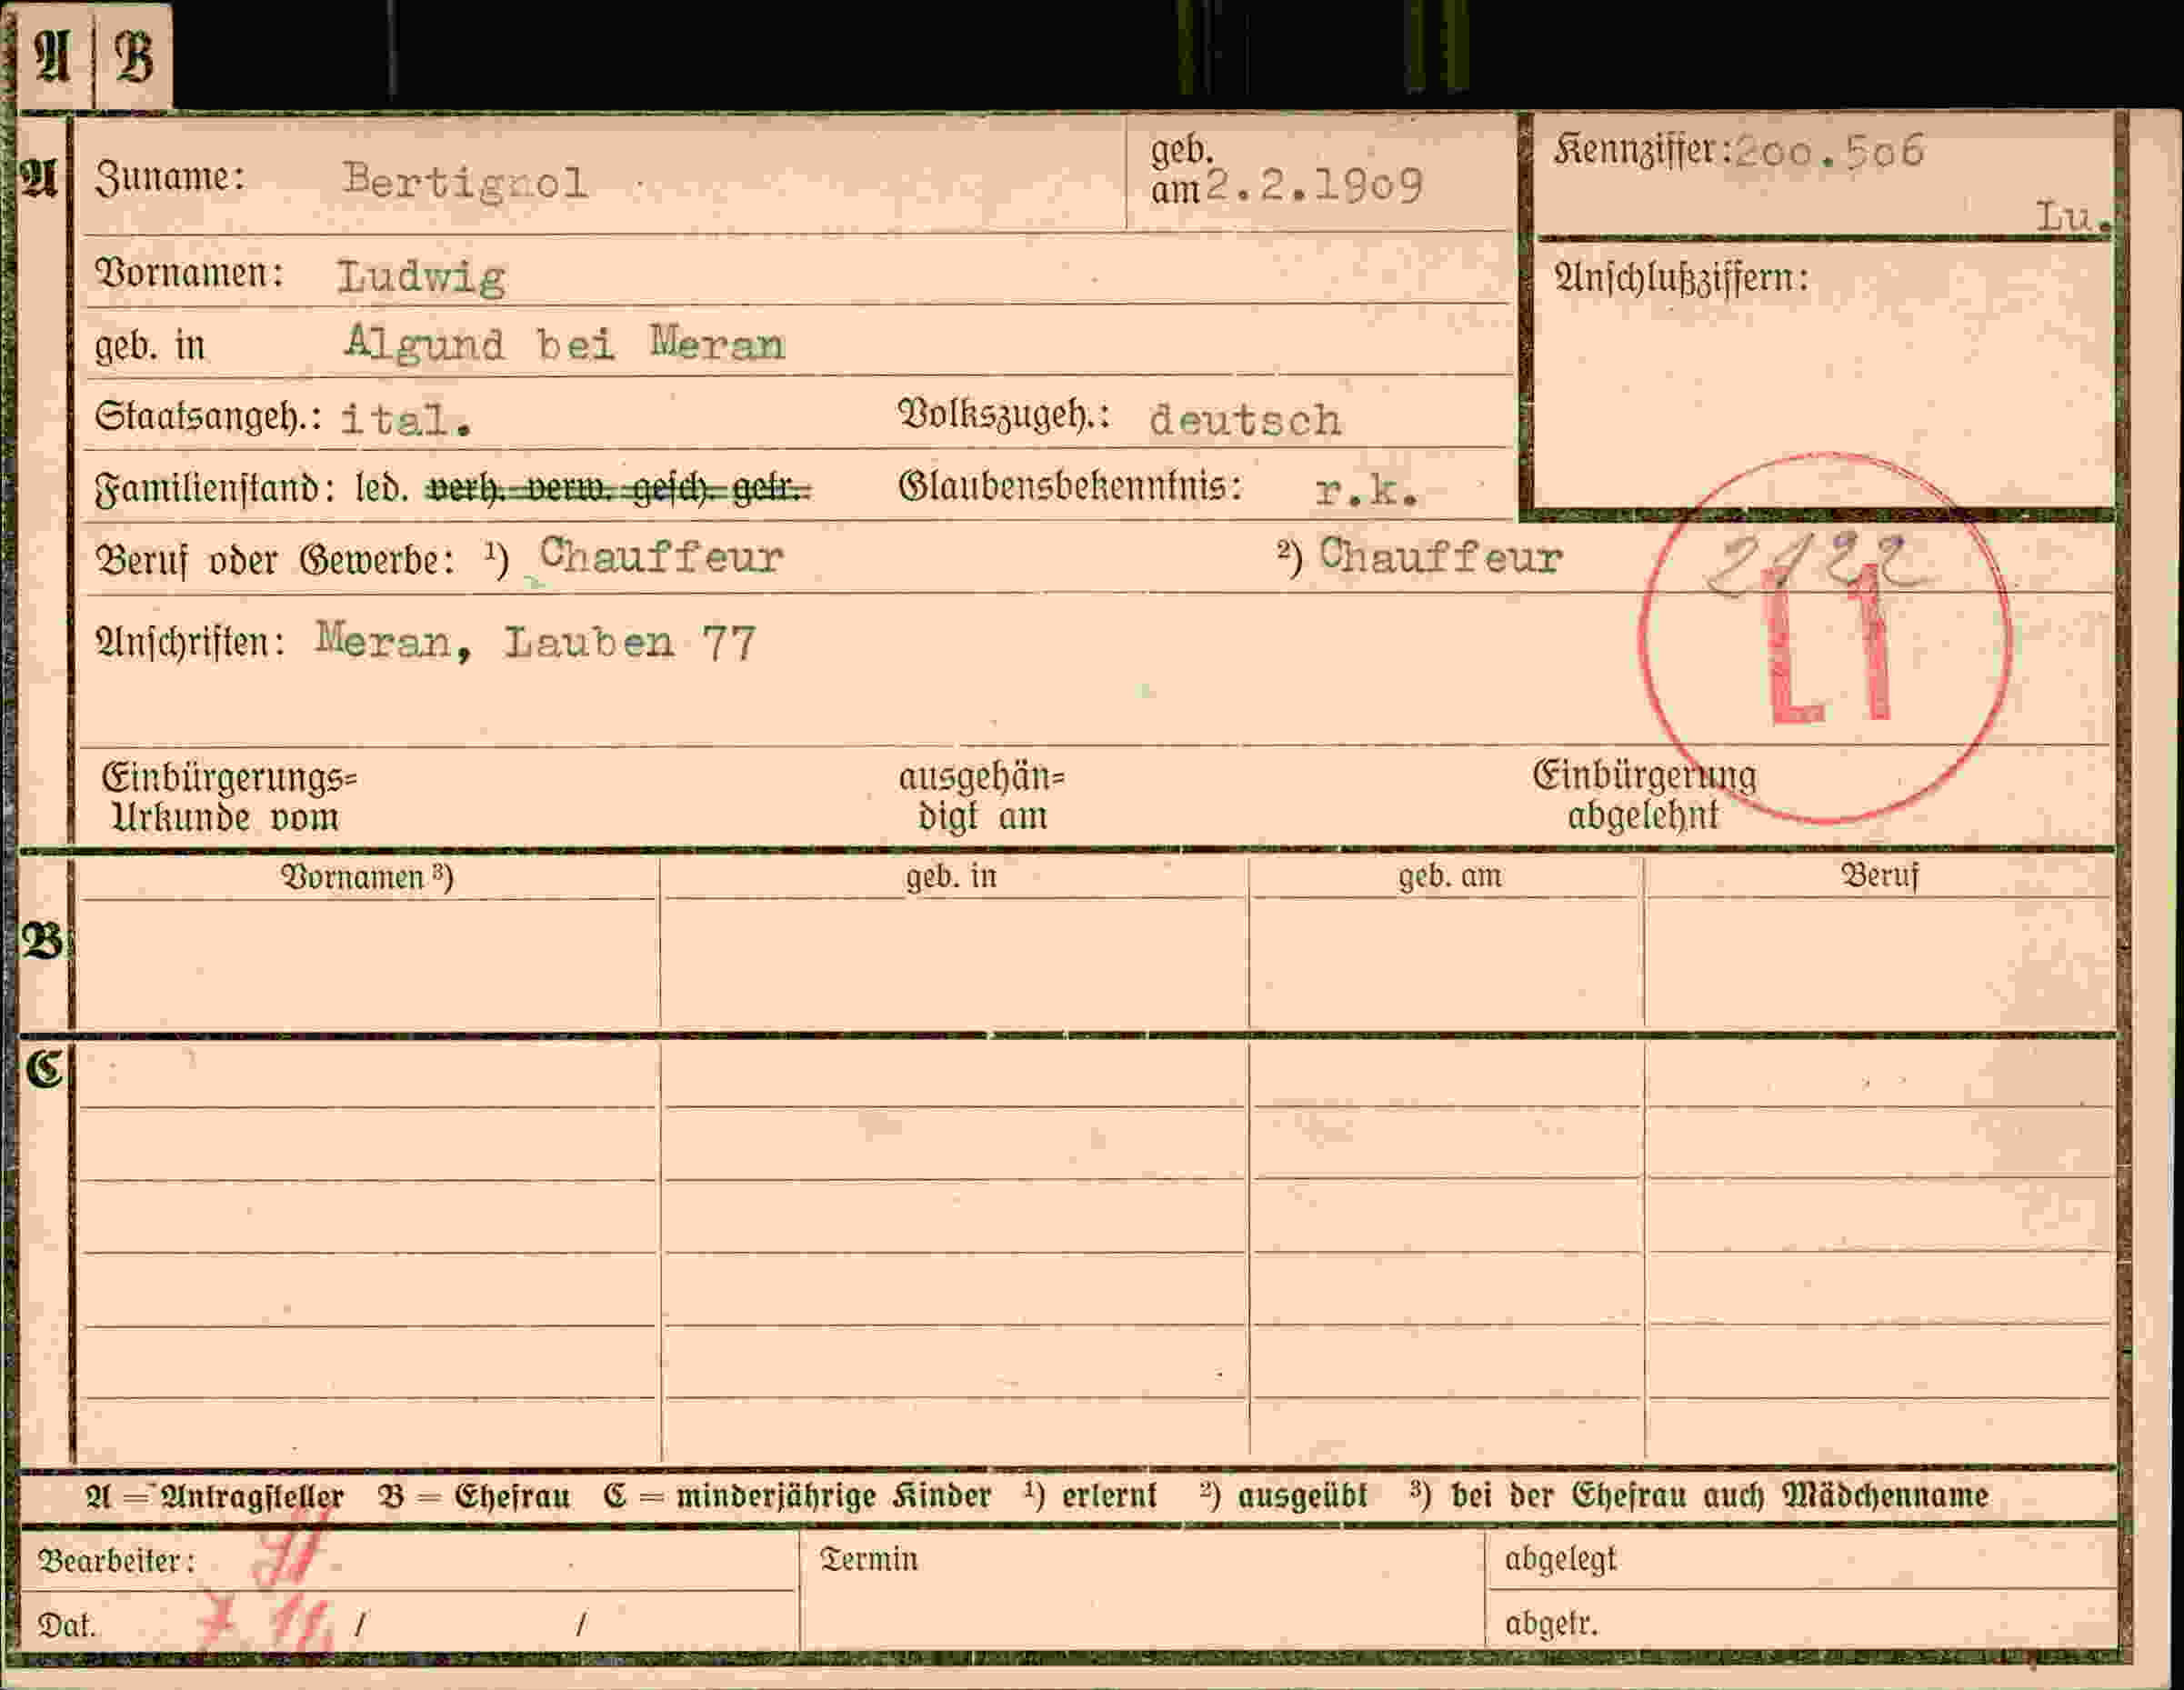 A | B
A Zuname: Bertignol geb. am 2.2.1909 Kennziffer: 200.506
Lu.
Vornamen: Ludwig Anschlußziffern:
geb. in Algund bei Meran
Staatsangeh.: ital. Volkszugeh.: deutsch
Familienstand: led. verh. verw. gesch. getr. Glaubensbekenntnis: r.k.
Beruf oder Gewerbe: ¹) Chauffeur ²) Chauffeur 2122
Anschriften: Meran, Lauben 77 L1
Einbürgerungs= ausgehän= Einbürgerung
Urkunde vom digt am abgelehnt
B Vornamen ³) geb. in geb. am Beruf
C
A = Antragsteller B = Ehefrau C = minderjährige Kinder ¹) erlernt ²) ausgeübt ³) bei der Ehefrau auch Mädchenname
Bearbeiter: Termin abgelegt
Dat. / / abgetr.